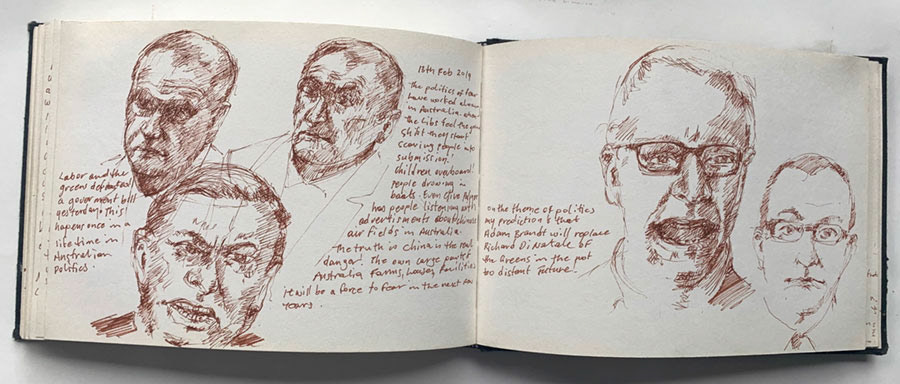 Labor and the
greens defeated
a goverment bill
yesterday. This
hapens once in a
life time in
Australian
Politics.
13th Feb 2019
The politics of fear
have worked
in Australia. when
the Libs feel the
start
scaring people into
submission!
children overboard
people drowing in
boats. Even Clive Palmer
has people listening with
advertisments about chinese
air fields in Australia.
The truth is China is the real
danger! She own large part of
Australia Farms, houses, facilities
it will be a force to fear in the next few
years.
on the theme of politics
my prediction is that
Adam Brandt will replace
Richard Di Natale of
the Greens in the not
too distant future!